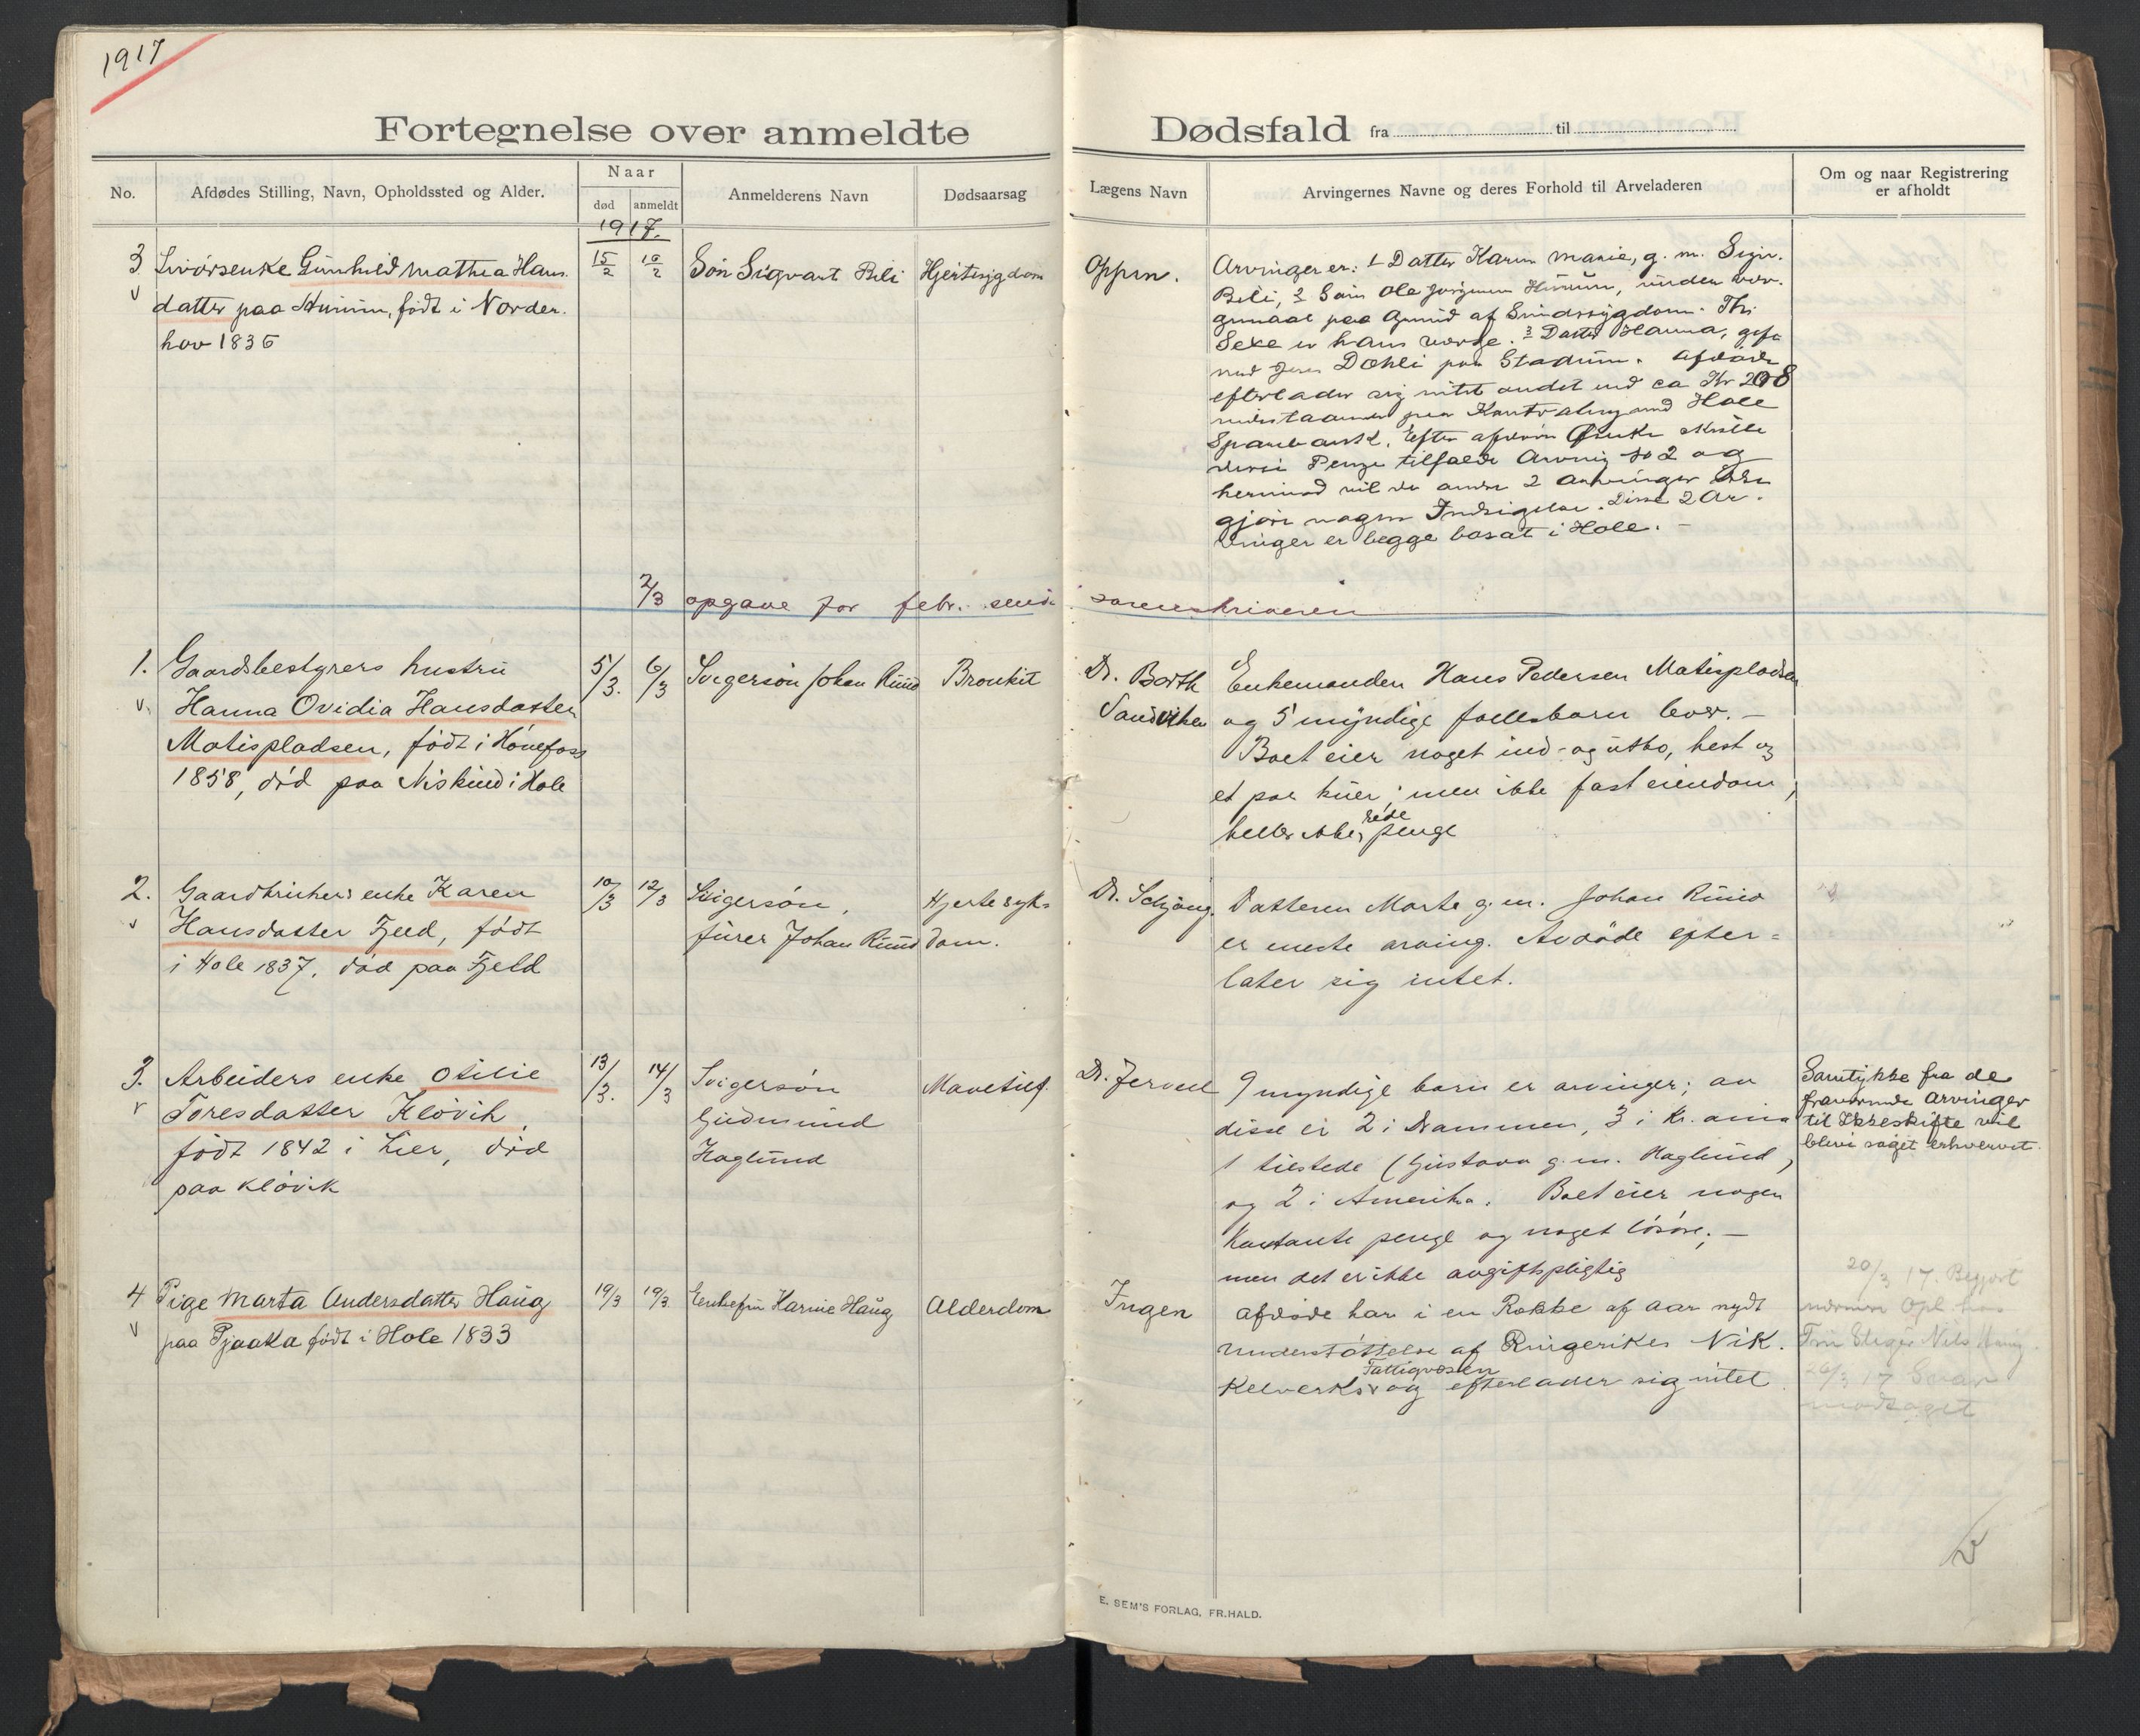 1917
Fortegnelse over anmeldte Dødsfald fra til
No.
Afdødes Stilling, Navn, Opholdssted og Alder.
Naar
død
anmeldt
Anmelderens Navn
Dødsaarsag
Lægens Navn
Arvingernes Navne og deres Forhold til Arveladeren
Om og naar Registrering
er afholdt
1917.
3
Gunhild Mathea Hans
datter paa født i Norder
hov 1836
15/2
16/2
Søn Sigvart Bili
Hjertesygdom
Oppen.
Arvinger er: 1 Datter Karen Marie, g. m. Sigv.
Bili, 2 Søn Ole Jørgensen under vær
gemaal paa Grund af Sindssygdom. Th.
er hans værge. 3 Datter Hanna, gift
med Jens Dæhli paa Stadum. Afdøde
efterlader sig intet andet end ca Kr 208
indestaaende paa med Hole
Sparebank. Efter afdødes Ønske skulle
disse Penge tilfalde Arving No 2 og
hermed vil de andre 2 Arvinger ikke
gjøre nogen Indsigelse. Disse 2 Ar-
vinger er begge bosat i Hole. -
2/3 opgave for febr. sendt sorenskriveren
1.
Gaardsbestyrers hustru
Hanna Ovidia Hansdatter
Matispladsen, født i Hønefoss
1858, død paa i Hole
5/3.
6/3
Svigersøn Johan Ruud
Bronkit
Dr. Barth
Sandviken
Enkemanden Hans Pedersen Matispladsen
og 5 myndige fællesbarn lever. -
Boet eier noget ind- og utbo, hest og
et par kuer; men ikke fast eiendom,
heller ikke rede penge
2.
Gaardbrukers enke Karen
Hansdatter Fjeld, født
i Hole 1837, død paa Fjeld
10/3
12/3
Svigersøn,
furer Johan Ruud
Hjertesyk=
dom.
Dr. Schjøng.
Datteren Marte g. m. Johan Ruud
er eneste arving. Avdøde efter=
later sig intet.
3.
Arbeiders enke Otilie
Toresdatter Kløvik,
født 1842 i Lier, død
paa Kløvik
13/3.
14/3
Svigersøn
Gudmund
Haglund
Mavetilf.
Dr. Jervell
9 myndige barn er arvinger; av
disse er 2 i Drammen, 3 i Kr.ania
1 tilstede (Gustava g. m. Haglund)
og 2 i Amerika. Boet eier nogen
Kontante penge og noget løsøre; -
men det er ikke avgiftspligtig
Samtykke fra de
fraværende Arvinger
til Ikkeskifte vil
blive søgt erhvervet.
4
Pige Marta Andersdatter Haug
paa Pjaaka født i Hole 1833
19/3
19/3
Enkefru Karnie Haug
Alderdom
Ingen
Afdøde har i en Række af Aar nydt
Understøttelse af Ringerikes Nik.
Kelverks Fattigvæsen og efterlader sig intet
20/3 17. Begjært
nærmere Opl. hos
Nils Haug.
26/3 17 Svar
modtaget
E. SEM'S FORLAG, FR.HALD.